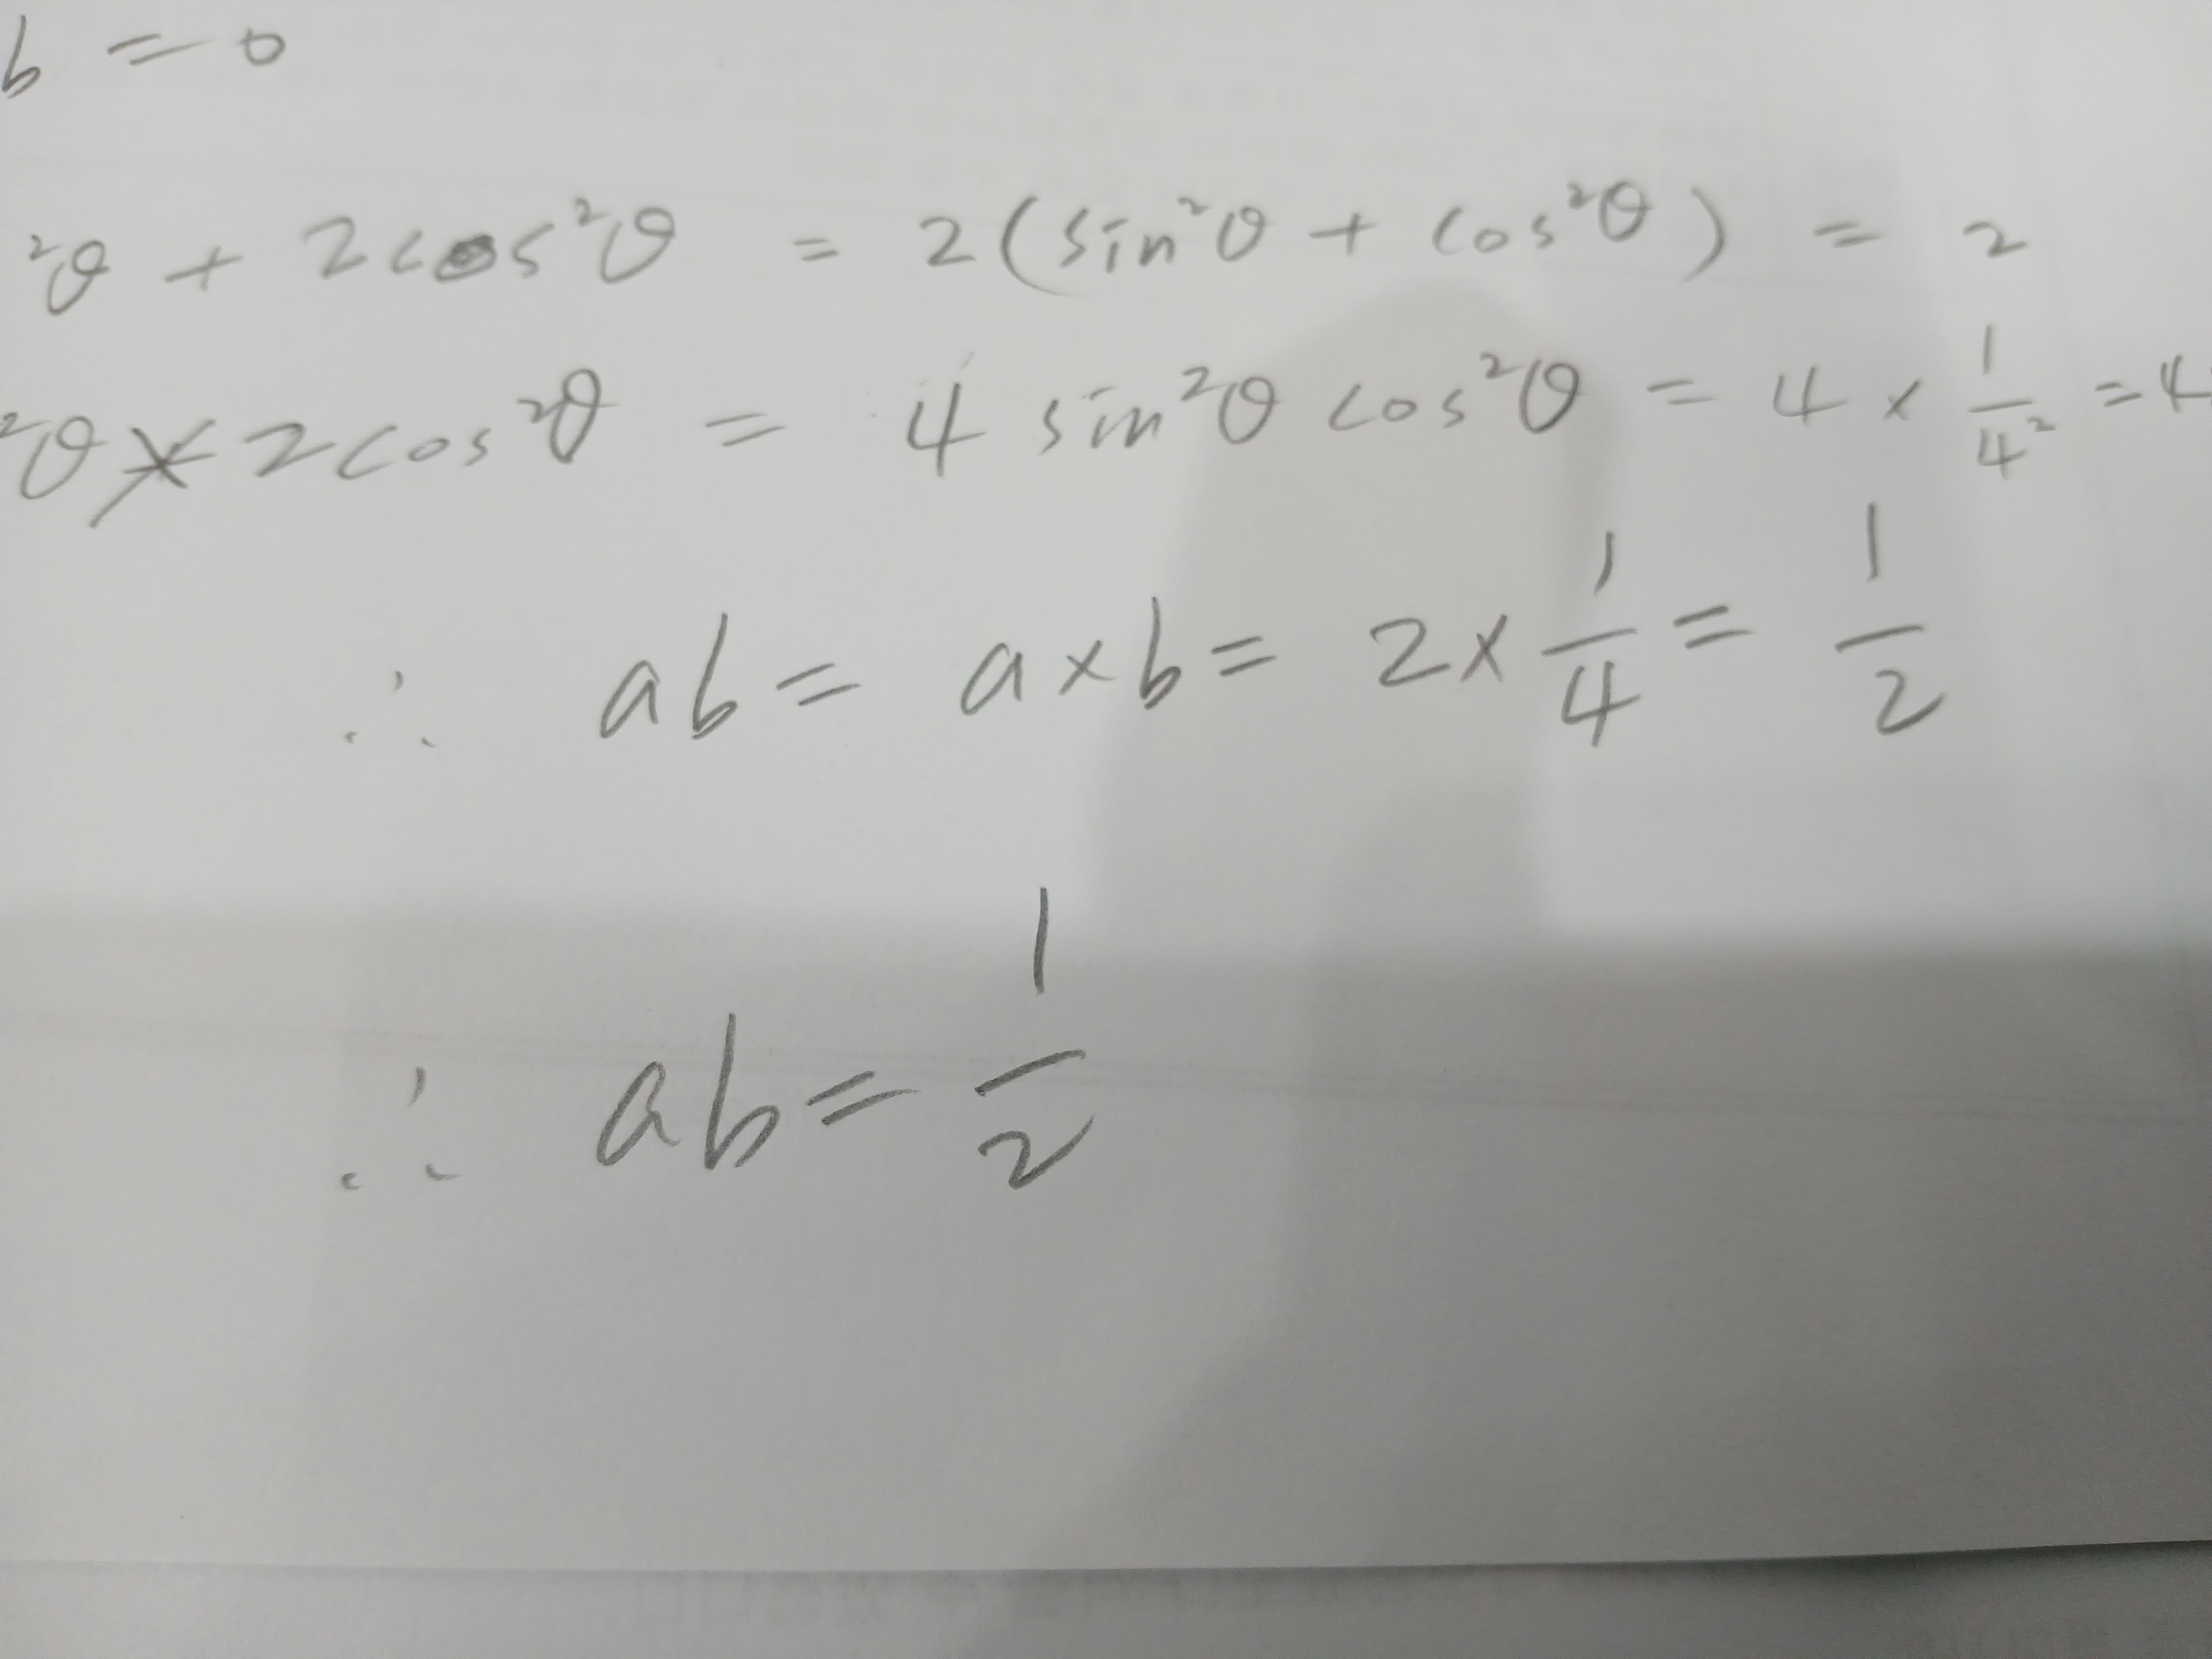 b = 0
²θ + 2cos²θ = 2(sin²θ + cos²θ) = 2
²θ × 2cos²θ = 4 sin²θ cos²θ = 4 × 1/4² = 4
∴ ab = a×b = 2 × 1/4 = 1/2
∴ ab = 1/2